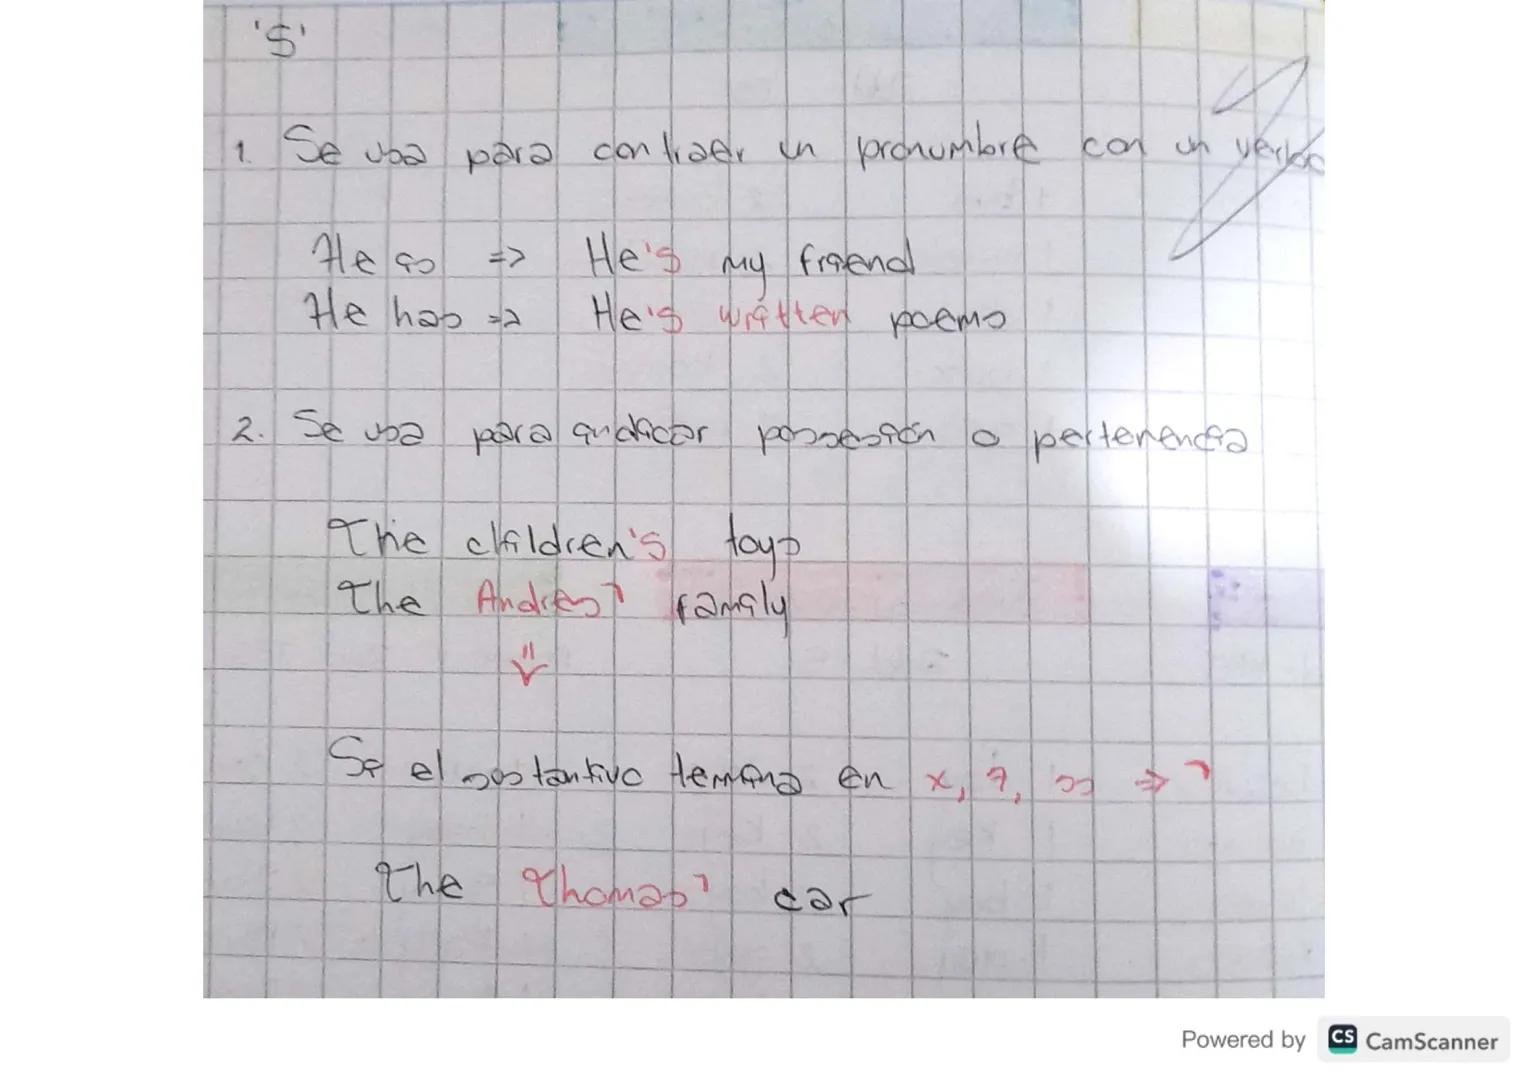 'S'
1. Se usa para contraer un pronumbre con un verbo
He is => He's my friend
He has => He's written poems
2. Se usa para indicar possesión o pertenencia
The children's toys
The Andres' family
Si el sustantivo termina en x, z, ss => '
The Thomas' car
Powered by CS CamScanner